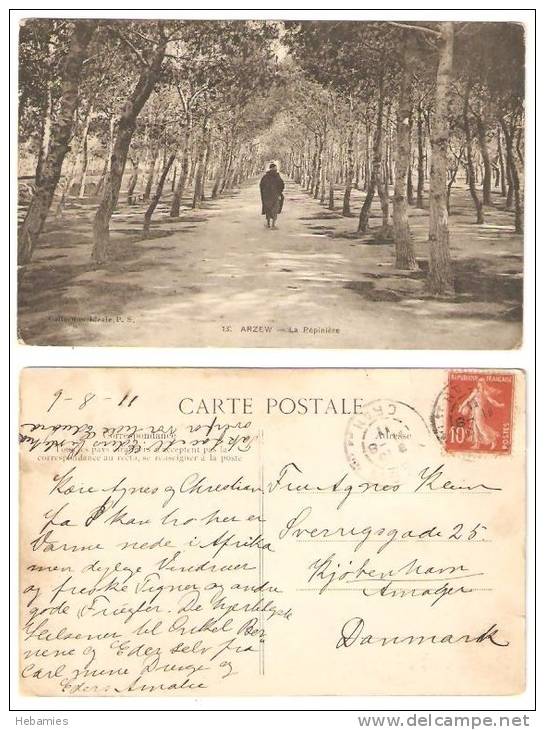 Collection Idéale, P. S.
13. ARZEW — La Pépinière
CARTE POSTALE
Correspondance
Adresse
Tous les pays étrangers n'acceptent pas la
correspondance au recto, se renseigner à la poste
11-8-6
RÉPUBLIQUE FRANÇAISE
10
POSTES
Kære Agnes og Christian
ja I kan tro her er
Varme nede i Afrika
men dejlige Vindruer
og friske Figner og andre
gode Frugter. De hjerteligste
Hilsener til Onkel
og Eder selv fra
Carl mine Drenge og
Eders Amalie
Fru Agnes Klein
Sverrigsgade 25.
Kjöbenhavn
Amager
Danmark
Hebamies
http://www.delcampe.net